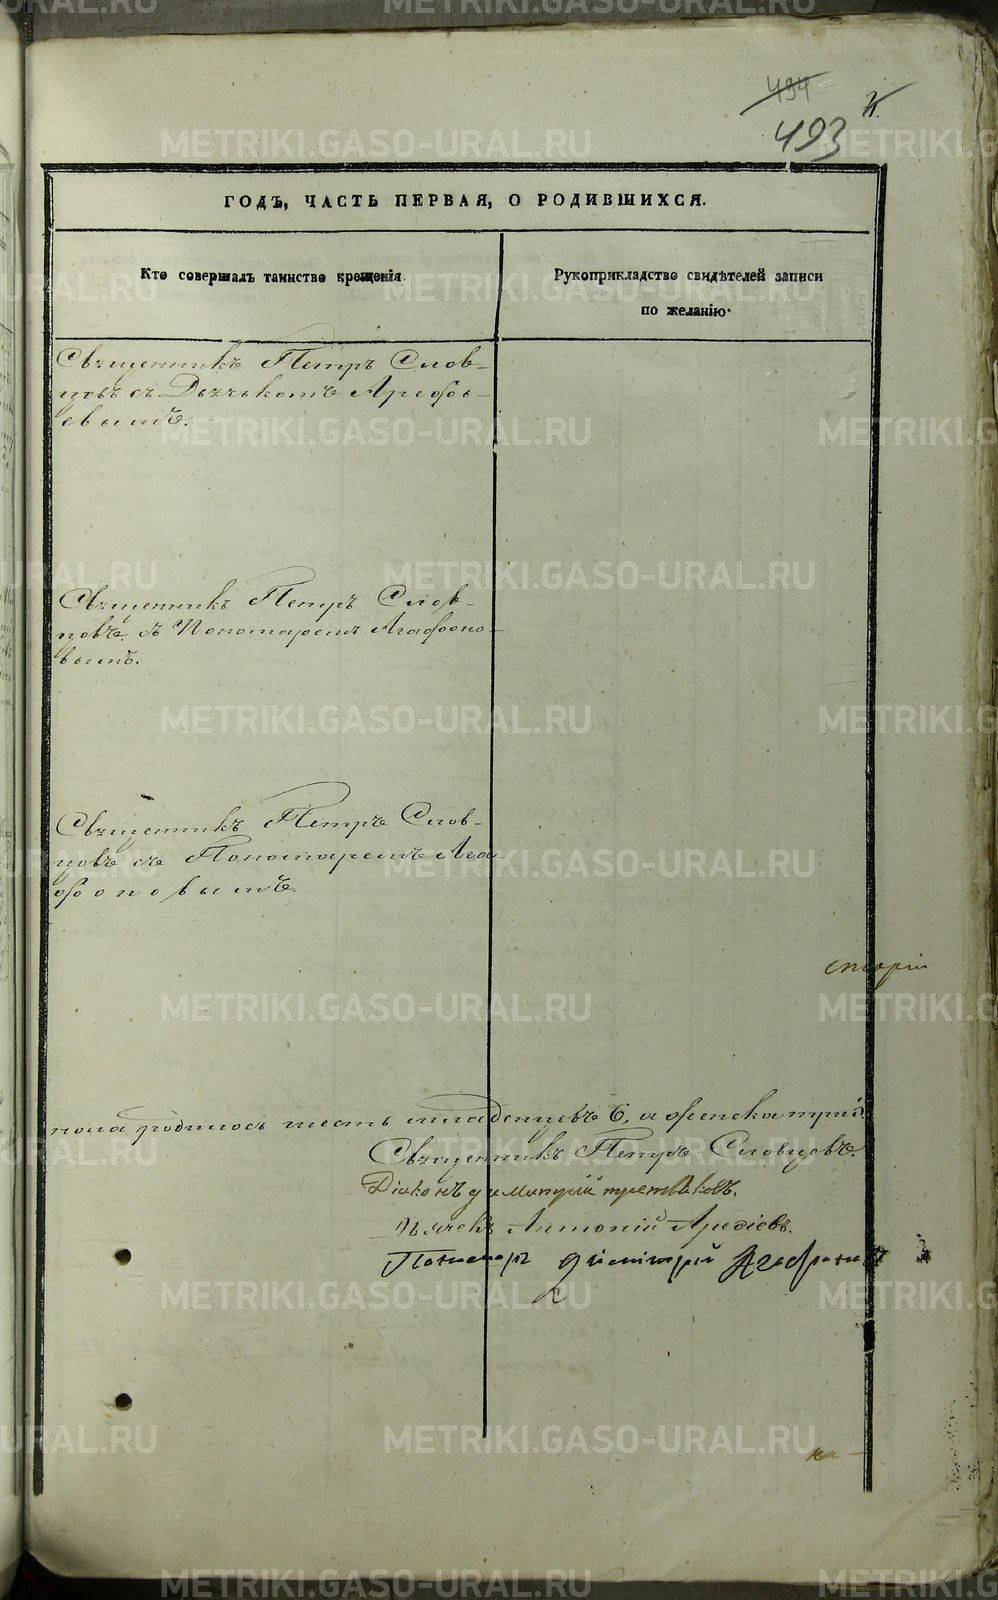 494
493
ГОДЪ, ЧАСТЬ ПЕРВАЯ, О РОДИВШИХСЯ.
Кто совершалъ таинство крещенія
Рукоприкладство свидѣтелей записи
по желанію.
Священникъ Петръ Слов-
цовъ съ Дьячкомъ Арефь-
евымъ.
Священникъ Петръ Слов-
цовъ съ Пономаремъ Агафоно-
вымъ.
Священникъ Петръ Слов-
цовъ съ Пономаремъ Ага-
фоновымъ.
пола родилось шесть младенцевъ 6, а женска три
Священникъ Петръ Словцовъ.
Діаконъ Димитрій Третьяковъ.
Дьячекъ Антоній Арефіевъ.
Пономарь Димитрій Агафонов
METRIKI.GASO-URAL.RU